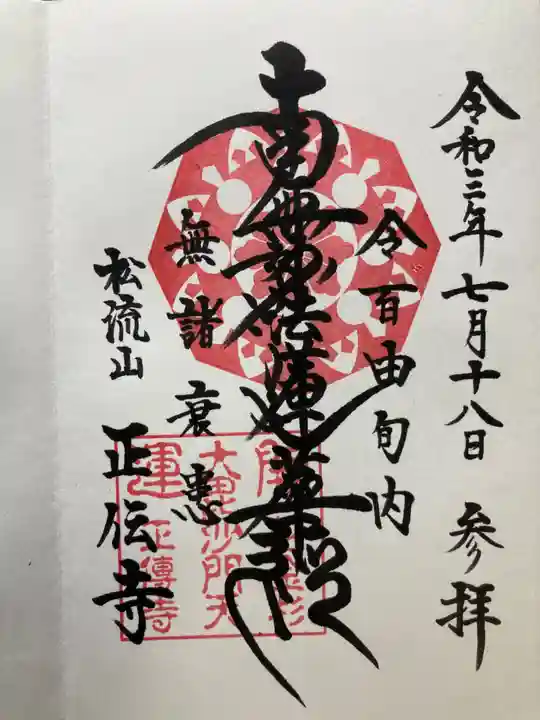 令和三年七月十八日 参拝
令百由旬内
南無妙法蓮華経
無諸衰患
松流山 正伝寺
開運
大毘沙門天
正傳寺